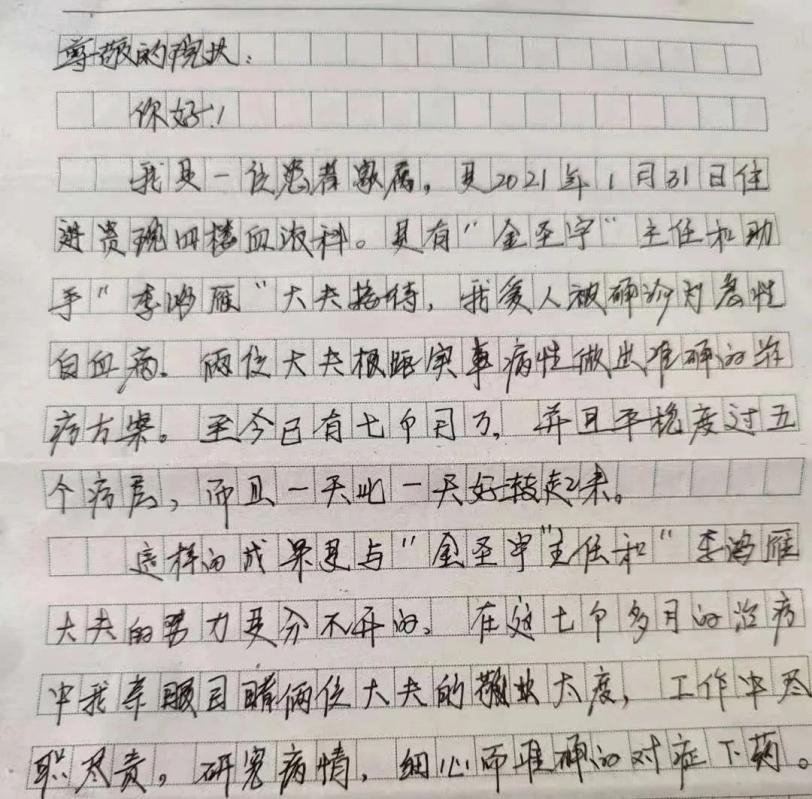 尊敬的院长：
你好！
我是一位患者家属，是2021年1月31日住
进贵院四楼血液科。是有“金圣宇”主任和助
手“李鸿雁”大夫接待，我爱人被确诊为急性
白血病。俩位大夫根据实事病性做出准确的治
疗方案。至今已有七个月了，并且平稳度过五
个疗层，而且一天比一天好转起来。
这样的成果是与“金圣宇”主任和“李鸿雁
大夫的努力是分不开的。在这七个多月的治疗
中我亲眼目睹俩位大夫的敬业太度，工作中尽
职尽责。研究病情，细心而准确的对症下药。